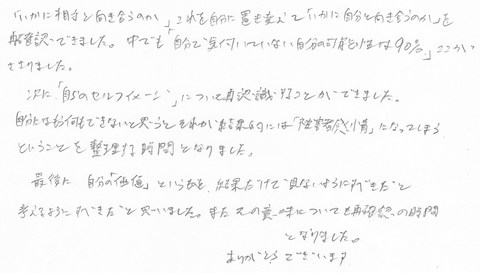 「いかに相手と向き合うのか」これを自分に置き変えて「いかに自分と向き合うのか」を
再確認できました。中でも「自分で気付いていない自分の可能性は90%」ここが
ささりました。
次に「自らのセルフイメージ」について再認識することができました。
自分には何もできないと思うと それが結果的には「障害感情」になってしまう
ということを整理する時間となりました。
最後に 自分の「価値」というものを、結果だけで見ないようにすべきだと
考えるようにすべきだと思いました。また その意味についても再確認の時間
となりました。
ありがとうございます